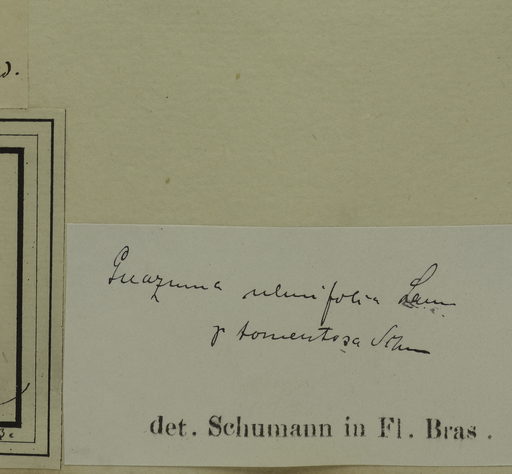 Guazuma ulmifolia Lam
γ tomentosa Schm
det. Schumann in Fl. Bras.